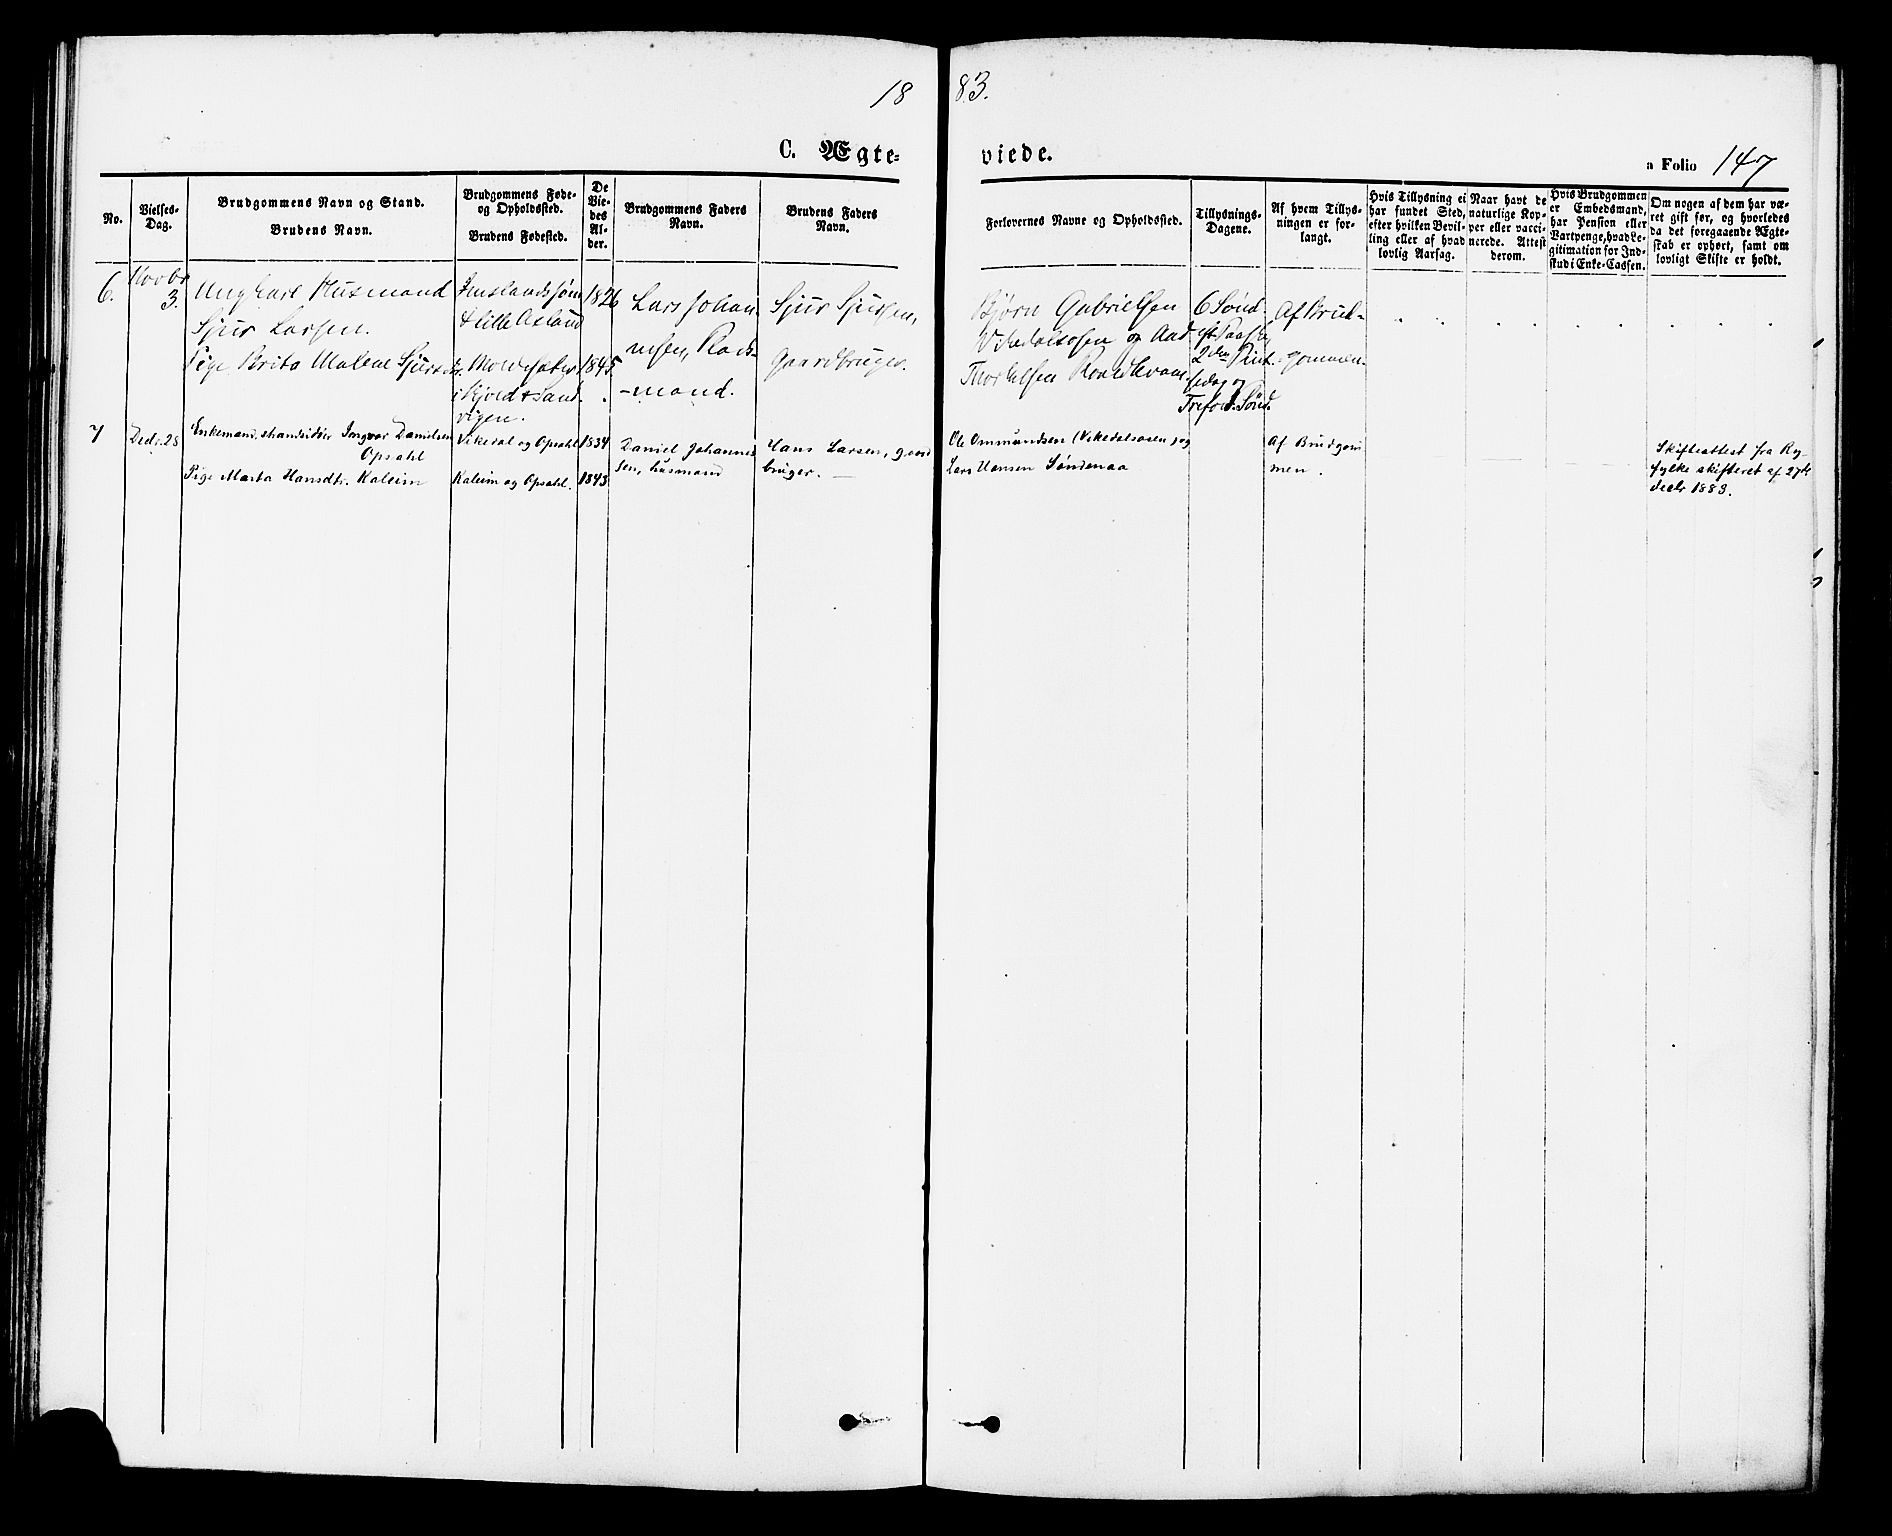 1883.
C. Ægteviede.
a Folio 147
No.
Vielses-
Dag.
Brudgommens Navn og Stand.
Brudens Navn.
Brudgommens Føde-
og Opholdssted.
Brudens Fødested.
De
Vie-
des
Al-
der.
Brudgommens Faders
Navn.
Brudens Faders
Navn.
Forlovernes Navne og Opholdssted.
Tillysnings-
Dagene.
Af hvem Tillys-
ningen er for-
langt.
Hvis Tillysning ei
har fundet Sted,
efter hvilken Bevil-
ling eller af hvad
lovlig Aarsag.
Naar havt de
naturlige Kop-
per eller vacci-
nerede. Attest
derom.
Hvis Brudgommen
er Embedsmand,
har Pension eller
Vartpenge, hvad Le-
gitimation for Ind-
skud i Enke-Cassen.
Om nogen af dem har væ-
ret gift før, og hvorledes
da det foregaaende Ægte-
skab er ophørt, samt om
lovligt Skifte er holdt.
6.
Novbr
3.
Ungkarl Husmand
Sjur Larsen.
Pige Brita Malene Sjursd
i Fjord & Sand-
vigen.
1826
1845
Lars Johan-
nesen, Plads-
-mand.
Sjur Sjursen,
Gaardbruger.
Bjørn Gabrielsen
Vikedalsosen og Aad
Thorkelsen
6 Sønd.
eft. Paaske,
2den Pint-
sedag og
Trefold. Sønd.
Af Brud-
gommen
7
Decbr. 28
Enkemand, strandsidder Ingvar Danielsen
Opsahl
Pige Marta Hansdtr. Kaleim
Vikedal og Opsahl
Kaleim og Opsahl.
1834
1843
Daniel Johannes
sen, husmand
Hans Larsen, gaard
bruger. —
Ole Ommundsen (Vikedalsosen) og
Lars Hansen Søndenaa
Af Brudgom
men.
Skifteattest fra Ry-
fylke skifteret af 27de
decbr 1883.